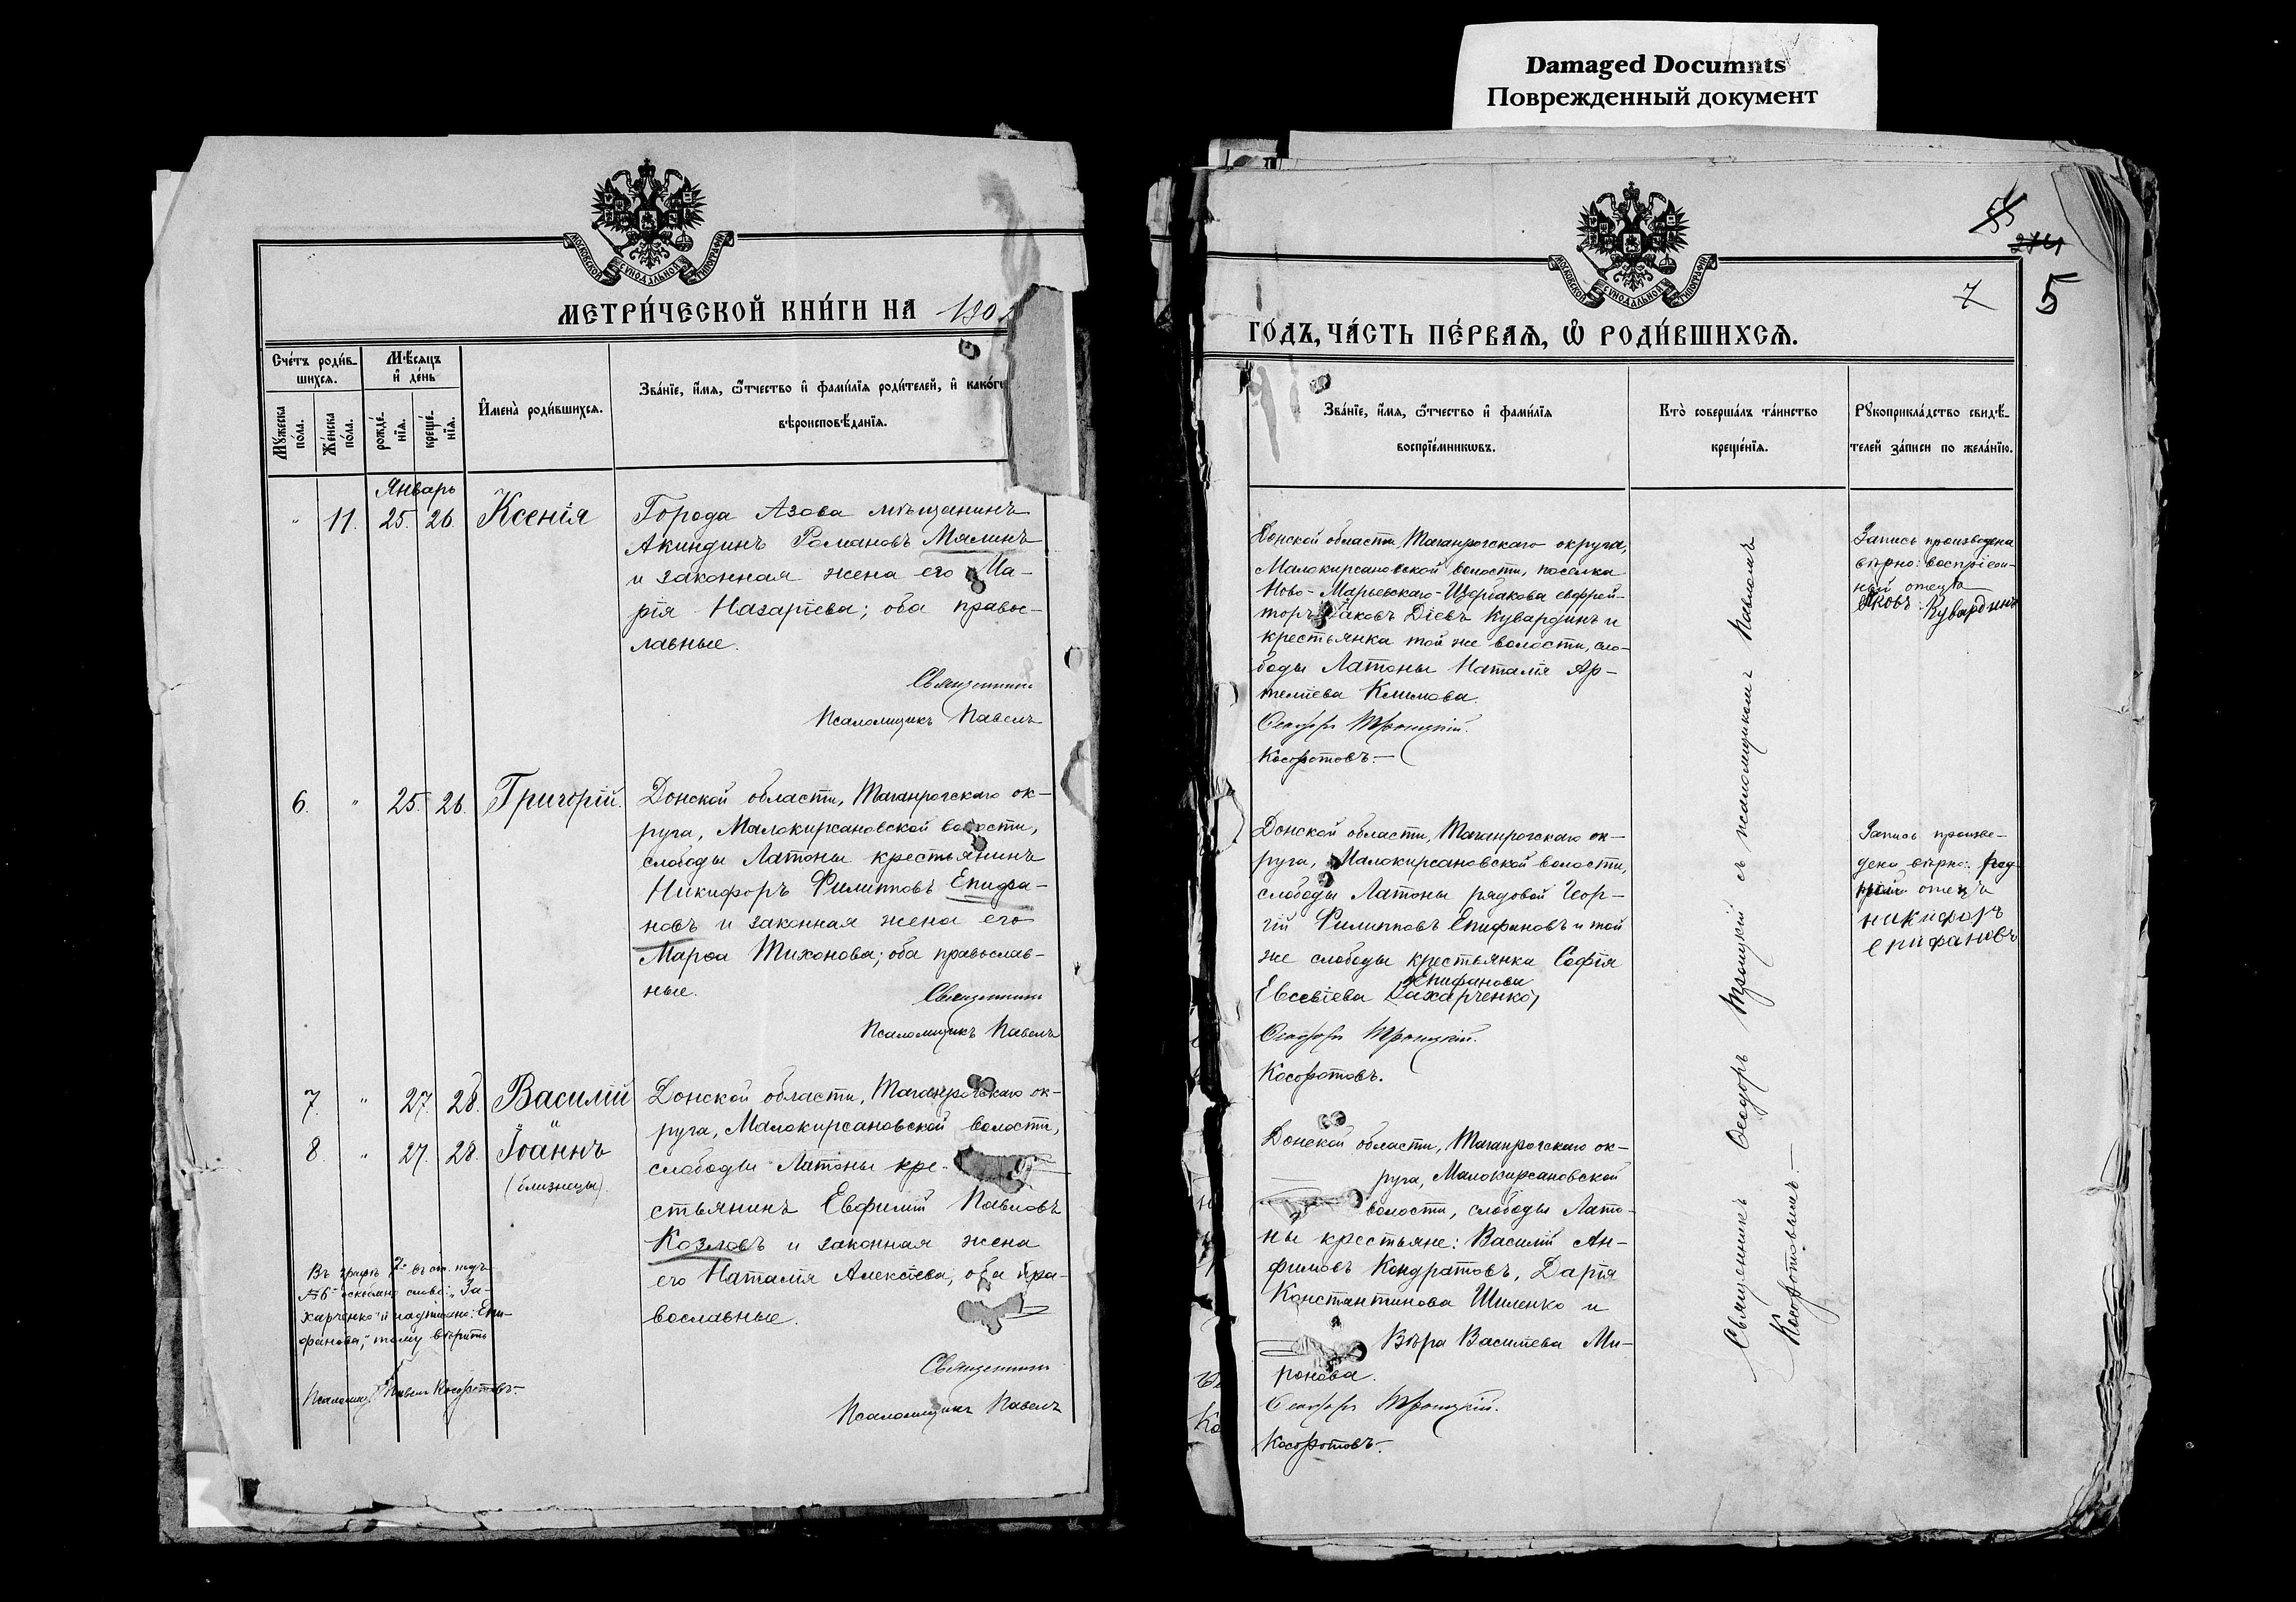 Damaged Documnts
Поврежденный документ
МОСКОВСКОЙ СѴНОДАЛЬНОЙ ТИПОГРАФІИ
МЕТРИ́ЧЕСКОЙ КНИ́ГИ НА 190
Сче́тъ роди́в-
шихсѧ.
Мѣ́сѧцъ
и҆ де́нь
Мꙋ́жеска по́ла.
Же́нска по́ла.
рожде́-
нїѧ.
креще́-
нїѧ.
И҆мена̀ роди́вшихсѧ.
Зва́нїе, и҆́мѧ, ѻ҆́тчество и҆ фами́лїѧ роди́телей, и҆ како́гѡ
вѣроисповѣ́данїѧ.
Январь
" 11. 25. 26. Ксенія
Города Азова мѣщанинъ
Акиндинъ Романовъ Мялинъ
и законная жена его Ма-
рія Назаріева; оба правос-
лавные.
Священникъ
Псаломщикъ Павелъ
6. " 25. 26. Григорій.
Донской области, Таганрогскаго ок-
руга, Малокирсановской волости,
слободы Латоны крестьянинъ
Никифоръ Филипповъ Епифа-
новъ и законная жена его
Марѳа Тихонова; оба православ-
ные.
Священникъ
Псаломщикъ Павелъ
7. " 27. 28. Василій
8. " 27. 28. Іоаннъ
(близнецы).
Донской области, Таганрогскаго ок-
руга, Малокирсановской волости,
слободы Латоны кре-
стьянинъ Евфимій Павловъ
Козловъ и законная жена
его Наталія Алексѣева; оба пра-
вославные.
Священникъ
Псаломщикъ Павелъ
Въ графѣ 2й въ ст. подъ
№ 6 слово: „За-
харченко" и надписано: Епи-
фанова," тому вѣрить
Псаломщ. Павелъ Косоротовъ.
5
7
МОСКОВСКОЙ СѴНОДАЛЬНОЙ ТИПОГРАФІИ
ГО́ДЪ, ЧА́СТЬ ПЕ́РВАѦ, Ѽ РОДИ́ВШИХСѦ.
Зва́нїе, и҆́мѧ, ѻ҆́тчество и҆ фами́лїѧ
воспрїе́мникѡвъ.
Кто̀ соверша́лъ та́инство
креще́нїѧ.
Рꙋкоприкла́дство свидѣ́-
телей за́писи по жела́нїю.
Донской области, Таганрогскаго округа,
Малокирсановской волости, поселка
Ново-Марьевскаго-Щербакова ефрей-
торъ Іаковъ Діевъ Кувардинъ и
крестьянка той же волости, сло-
боды Латоны Наталія Ар-
теміева Климова.
Ѳеодоръ Троицкій.
Косоротовъ.
Запись произведена
вѣрно: воспріем-
ный отецъ
Яковъ Кувардинъ
Донской области, Таганрогскаго ок-
руга, Малокирсановской волости,
слободы Латоны рядовой Геор-
гій Филипповъ Епифановъ и той
же слободы крестьянка Софія
Епифанова
Евсевіева (Захарченко)
Ѳеодоръ Троицкій.
Косоротовъ.
Запись произве-
дена вѣрно: род-
ной отецъ
никифоръ
епифановъ
Донской области, Таганрогскаго ок-
руга, Малокирсановской
волости, слободы Лато-
ны крестьяне: Василій Ан-
фимовъ Кондратовъ, Дарія
Константинова Шиленко и
Вѣра Василіева Ми-
ронова.
Ѳеодоръ Троицкій.
Косоротовъ.
Священникъ Ѳеодоръ Троицкій съ псаломщикомъ Павломъ
Косоротовымъ.